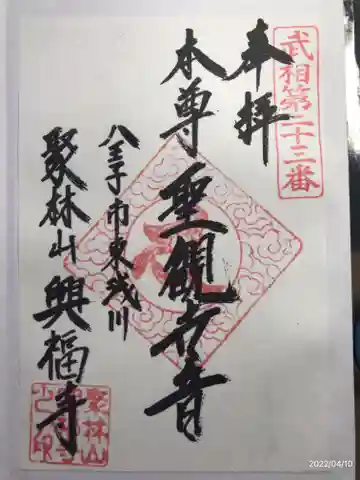 武相第二十三番
奉拝
本尊 聖観世音
八王子市東浅川
聚林山 興福寺
聚林山
2022/04/10